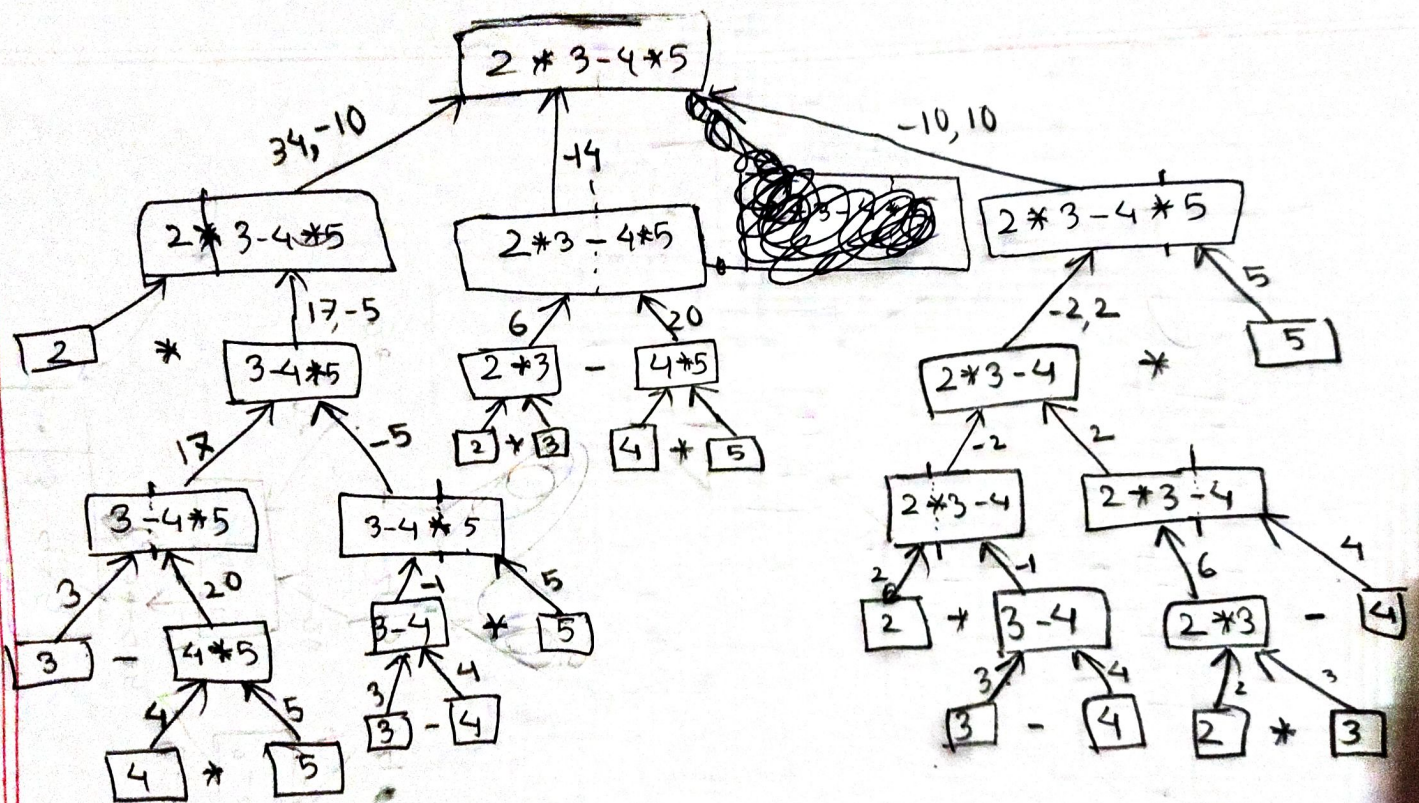 2 * 3-4*5
34,-10
-14
-10, 10
2* 3-4*5
2*3 - 4*5
2*3-4*5
17,-5
6
20
-2,2
5
2
*
3-4*5
2*3
-
4*5
2*3-4
*
5
17
-5
2 * 3
4 * 5
-2
2
3-4*5
3-4*5
2*3-4
2*3-4
3
20
-1
5
2
-1
6
4
3
-
4*5
3-4
*
5
2
*
3-4
2*3
-
4
4
5
3
4
3
4
2
3
4 * 5
3 - 4
3 - 4
2 * 3